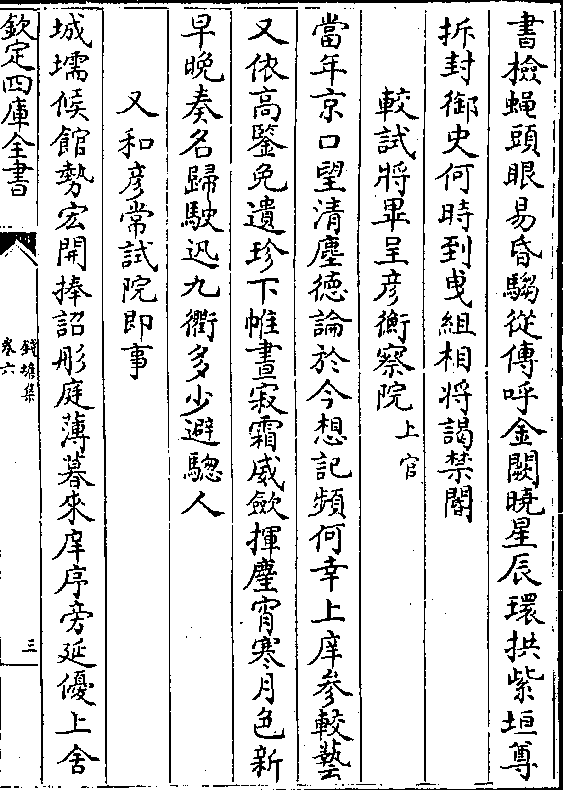 書檢蝇頭眼易昏騶從傳呼金闕曉星辰環拱紫垣尊
拆封御史何時到曵組相將謁禁閽
較試將畢呈彦衡察院上官
當年京口望清塵徳論於今想記頻何幸上庠參較藝
又依高鑒免遺珍下帷晝寂霜威歛揮麈宵寒月色新
早晚奏名歸駛迅九衢多少避驄人
又和彦常試院即事
城堧候館勢宏開捧詔彤庭薄暮來庠序旁延優上舍
欽定四庫全書
錢塘集
卷六
三